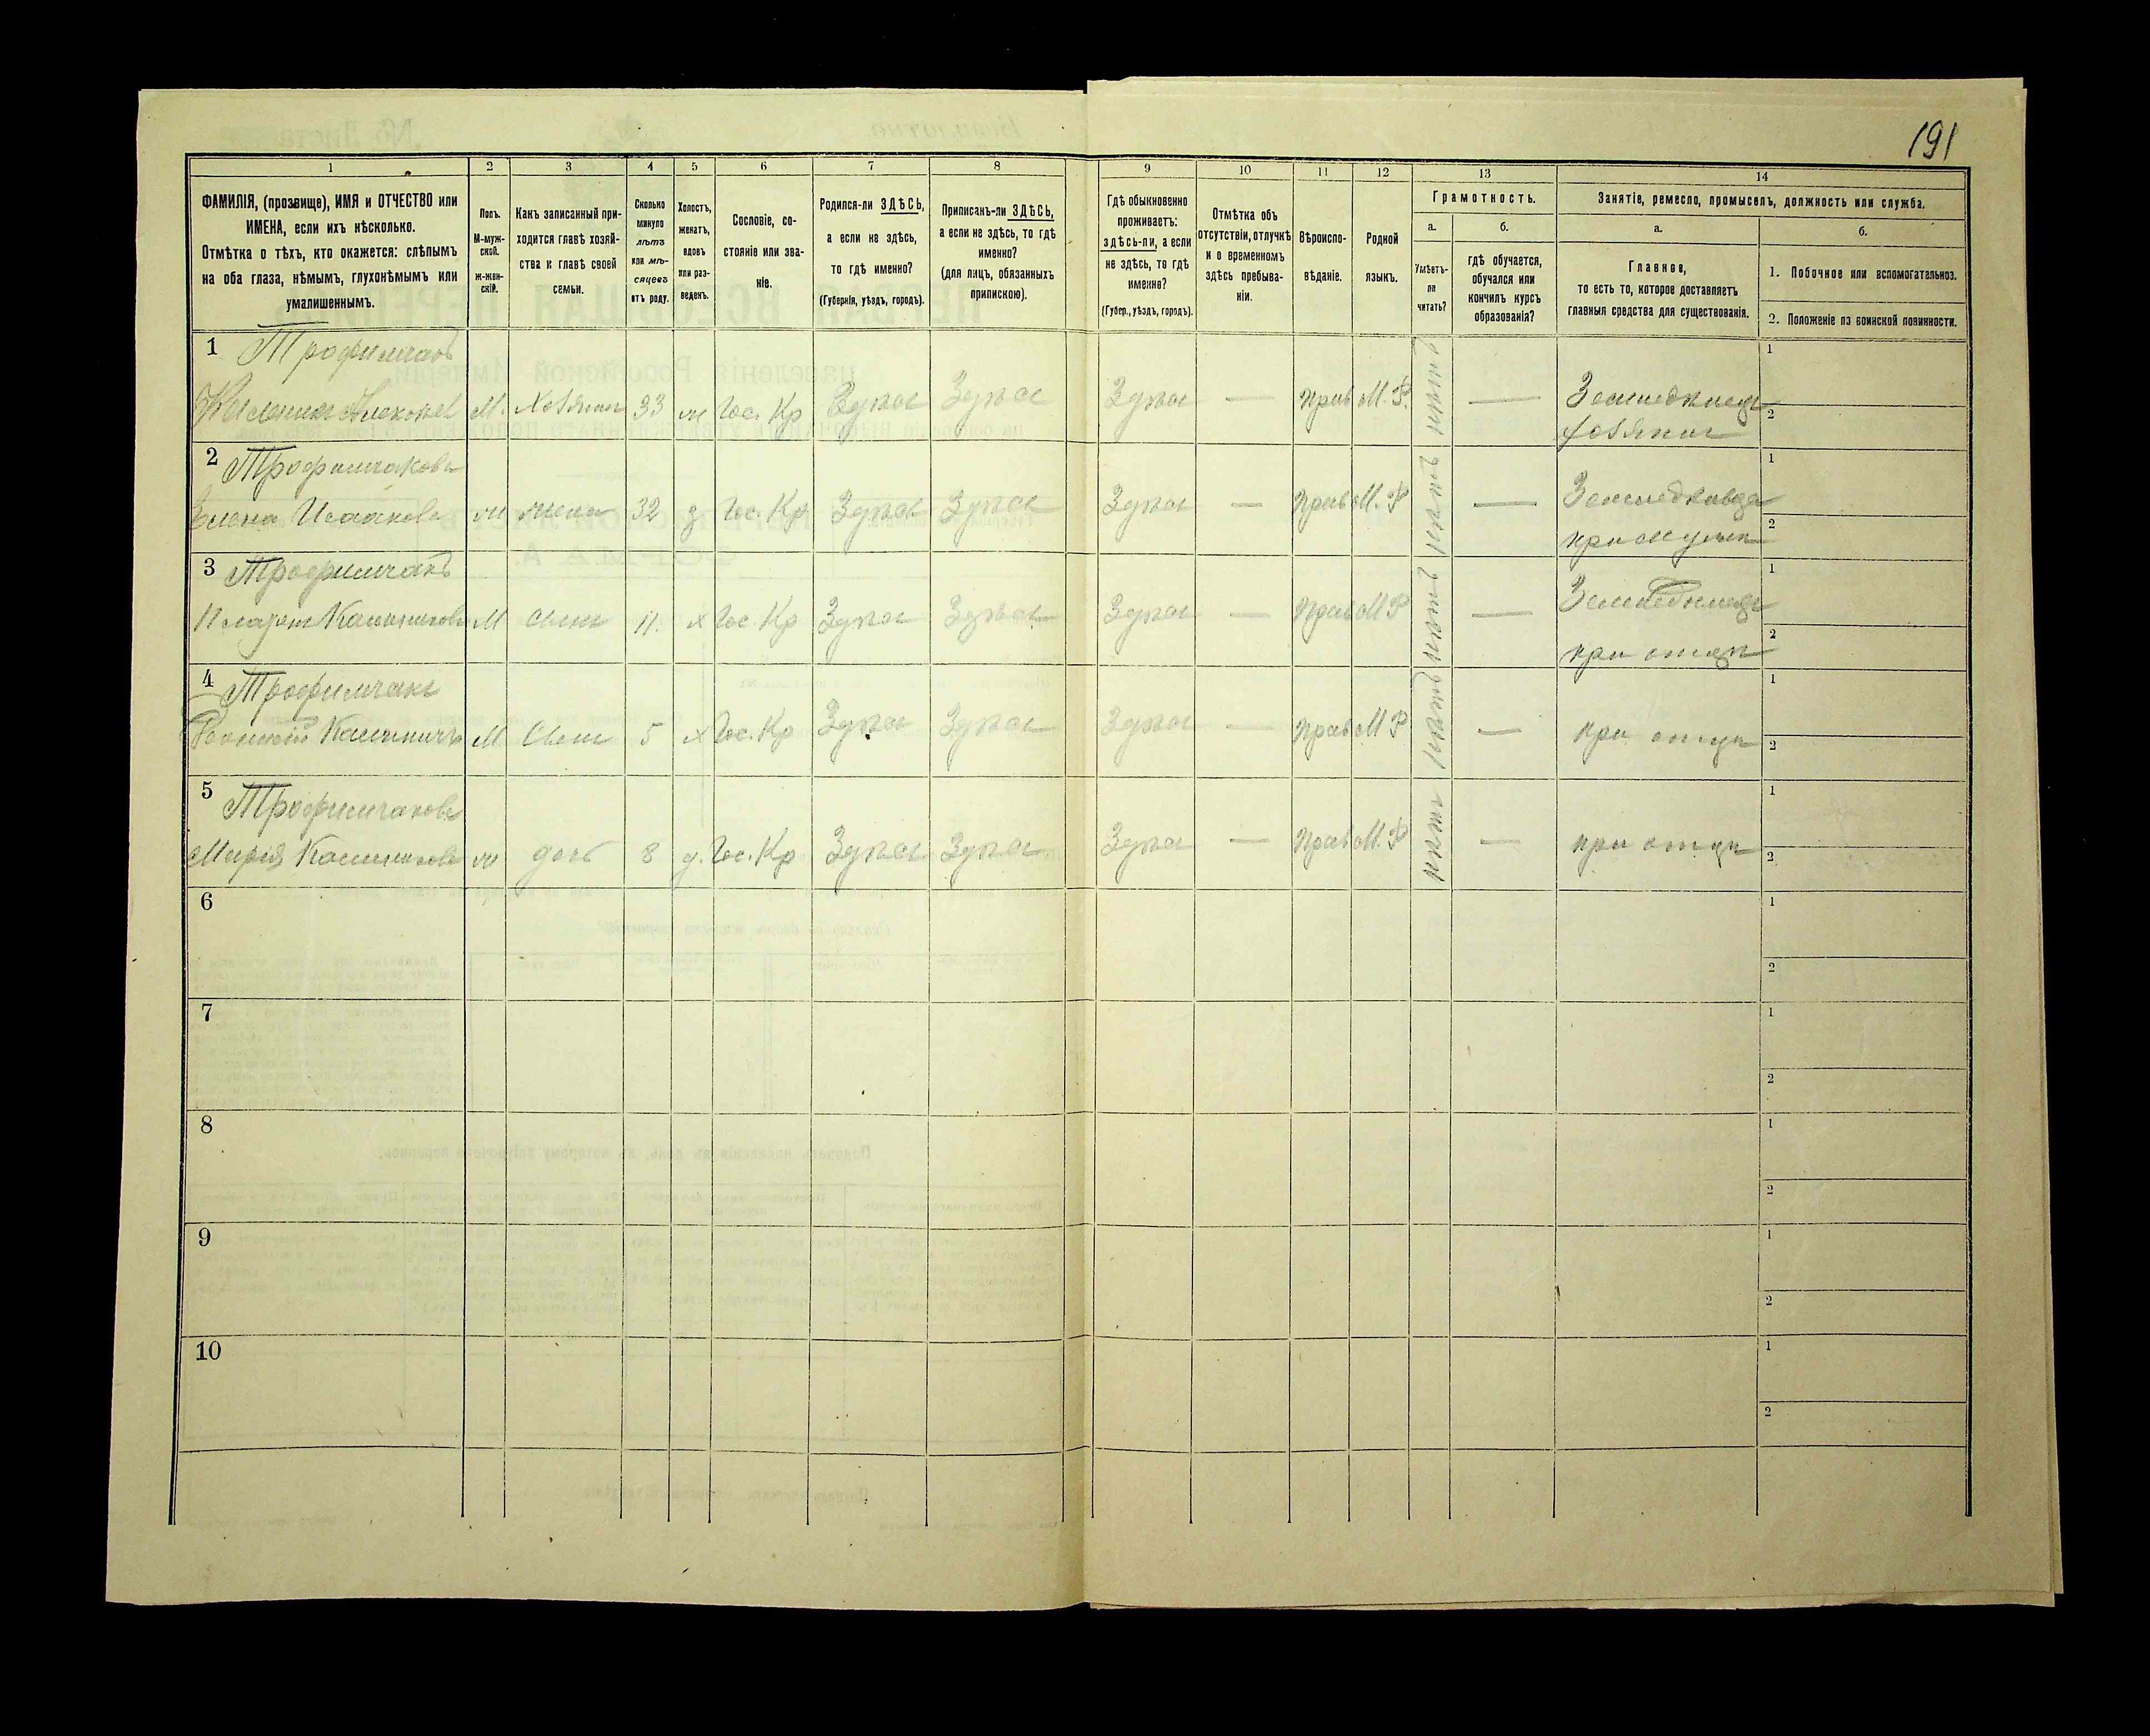 191
1 2 3 4 5 6 7 8 9 10 11 12 13 14
ФАМИЛІЯ, (прозвище), ИМЯ и ОТЧЕСТВО или
ИМЕНА, если ихъ нѣсколько.
Отмѣтка о тѣхъ, кто окажется: слѣпымъ
на оба глаза, нѣмымъ, глухонѣмымъ или
умалишеннымъ.
Полъ.
М-муж-
ской.
ж-жен-
скій.
Какъ записанный при-
ходится главѣ хозяй-
ства и главѣ своей
семьи.
Сколько
минуло
лѣтъ
или мѣ-
сяцевъ
отъ роду.
Холостъ,
женатъ,
вдовъ
или раз-
веденъ.
Сословіе, со-
стояніе или зва-
ніе.
Родился-ли ЗДѢСЬ,
а если не здѣсь,
то гдѣ именно?
(Губернія, уѣздъ, городъ).
Приписанъ-ли ЗДѢСЬ,
а если не здѣсь, то гдѣ
именно?
(для лицъ, обязанныхъ
припискою).
Гдѣ обыкновенно
проживаетъ:
здѣсь-ли, а если
не здѣсь, то гдѣ
именно?
(Губер., уѣздъ, городъ).
Отмѣтка объ
отсутствіи, отлучкѣ
и о временномъ
здѣсь пребыва-
ніи.
Вѣроиспо-
вѣданіе.
Родной
языкъ.
Грамотность.
а.
Умѣетъ-
ли
читать?
б.
гдѣ обучается,
обучался или
кончилъ курсъ
образованія?
Занятіе, ремесло, промыселъ, должность или служба.
а.
Главное,
то есть то, которое доставляетъ
главныя средства для существованія.
б.
1. Побочное или вспомогательноз.
2. Положеніе по воинской повинности.
1 Трофимчакъ 1
М. Хозяин 33 ж Гос. Кр Здѣсь Здѣсь Здѣсь — прав М. Р. нѣтъ — Земледѣлецъ 2
хозяин
2 Трофимчакова 1
Елена Исаакова ж жена 32 з Гос. Кр Здѣсь Здѣсь Здѣсь — прав М. Р нѣтъ —
при мужѣ 2
3 Трофимчакъ 1
М Сын 11. х Гос Кр Здѣсь Здѣсь Здѣсь — прав М Р нѣтъ — Земледѣлецъ 2
при отцѣ
4 Трофимчакъ 1
М Сын 5 х Гос. Кр Здѣсь Здѣсь Здѣсь — прав М Р нѣтъ — при отцѣ 2
5 Трофимчакова 1
Марія ж доч 8 д. Гос. Кр Здѣсь Здѣсь Здѣсь — прав М. Р нѣтъ — при отцѣ 2
6 1
2
7 1
2
8 1
2
9 1
2
10 1
2